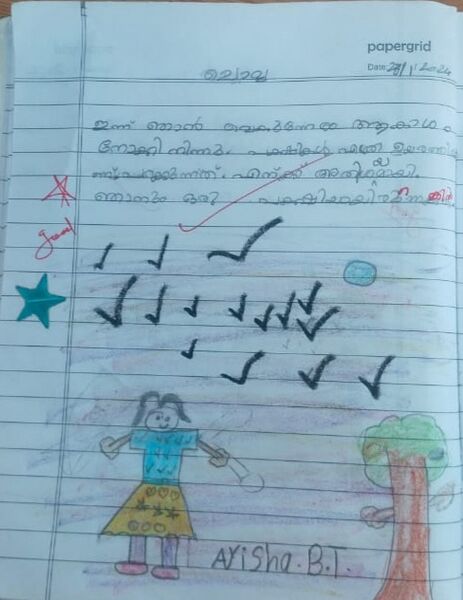 papergrid
Date: 23/1/2024
ചൊവ്വ
ഇന്ന് ഞാൻ വൈകുന്നേരം ആകാശം
നോക്കി നിന്നു. പക്ഷികൾ എത്ര ഉയരത്തി
ണ് പറക്കുന്നത്. എനിക്ക് അതിശയമായി.
ഞാനും ഒരു പക്ഷിയായിരുന്നെങ്കിൽ
good
Arisha.B.T.